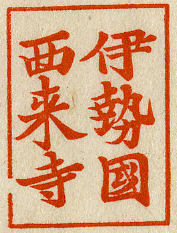 伊勢國
西来寺